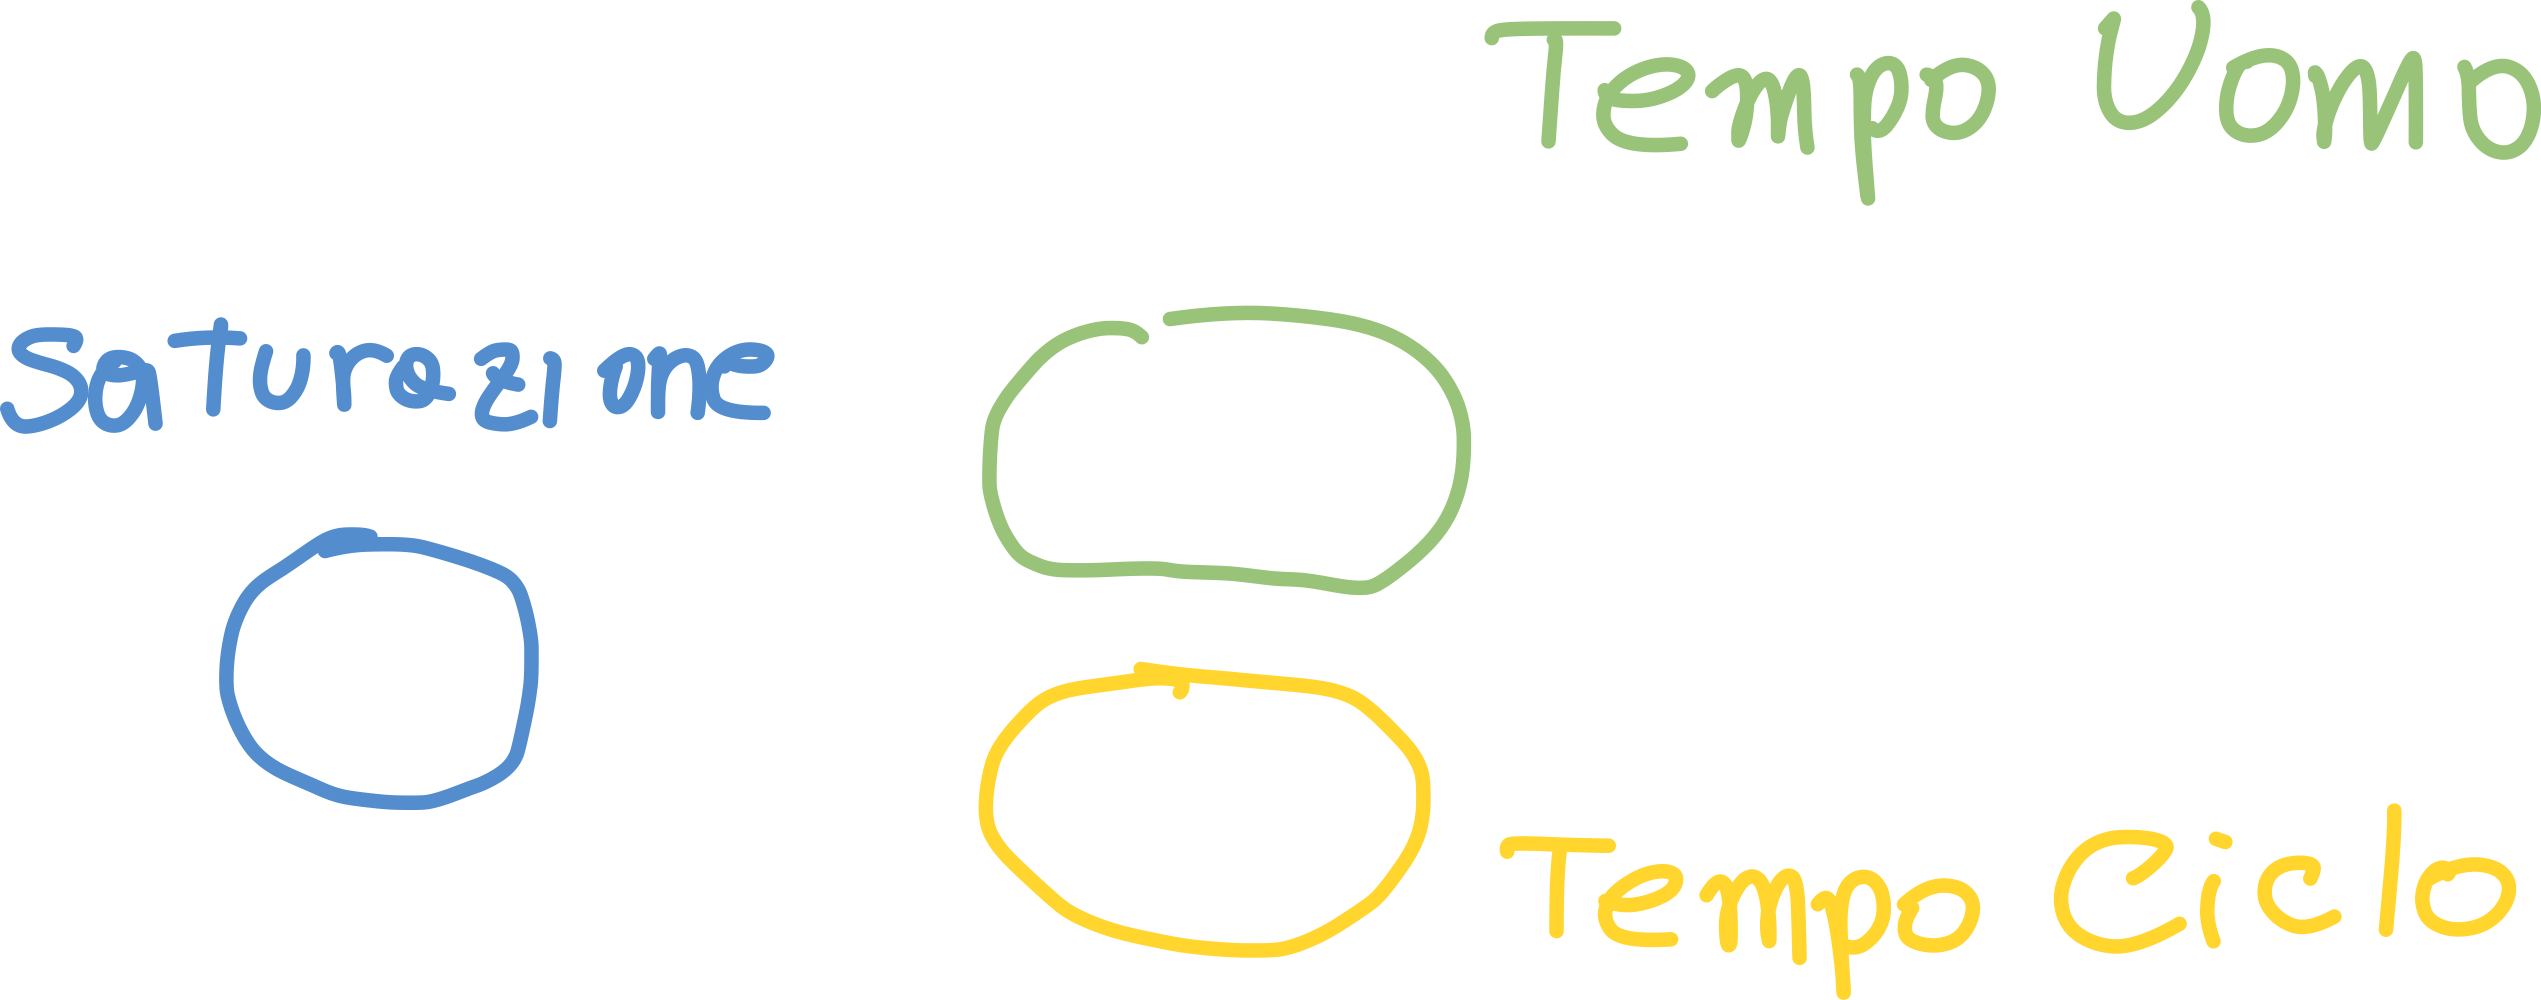 Tempo Uomo
Saturazione
Tempo Ciclo